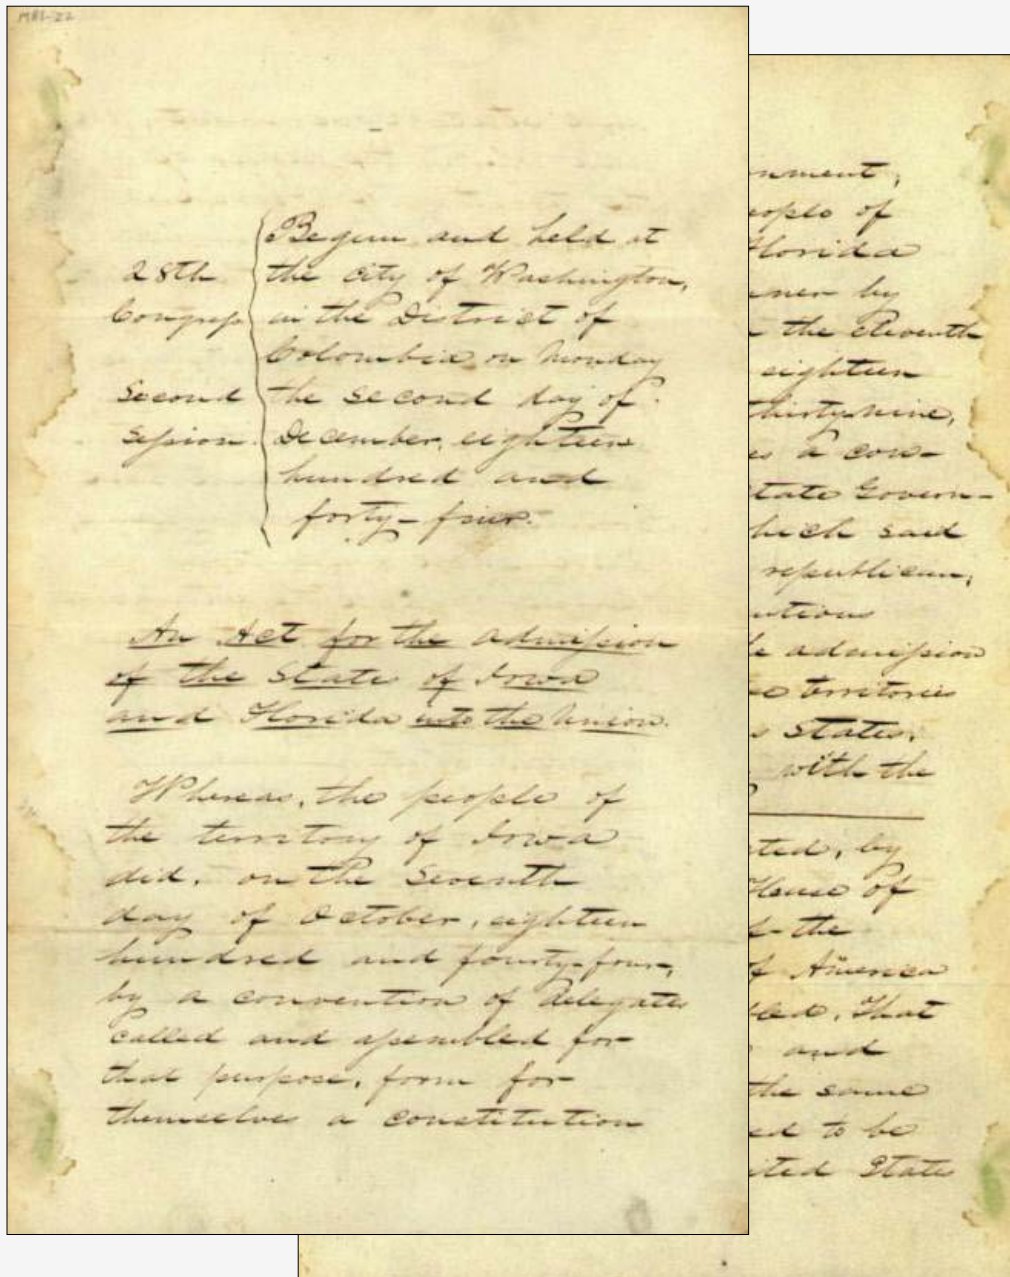 Begun and held at
28th the city of Washington,
Congress in the District of
Columbia on Monday
Second the second day of
Session December, eighteen
hundred and
forty-four.
An Act for the admission
of the State of Iowa
and Florida into the Union.
Whereas, the people of
the territory of Iowa
did, on the seventh
day of October, eighteen
hundred and fourty-four,
by a convention of delegates
called and assembled for
that purpose, form for
themselves a constitution
nment,
eople of
Florida
nner by
the eleventh
eighteen
thirty-nine,
es a con-
tate Govern-
hich said
republican,
utions
e admission
territories
States,
with the
ted, by
House of
the
f America
led, That
and
the same
ed to be
ited States